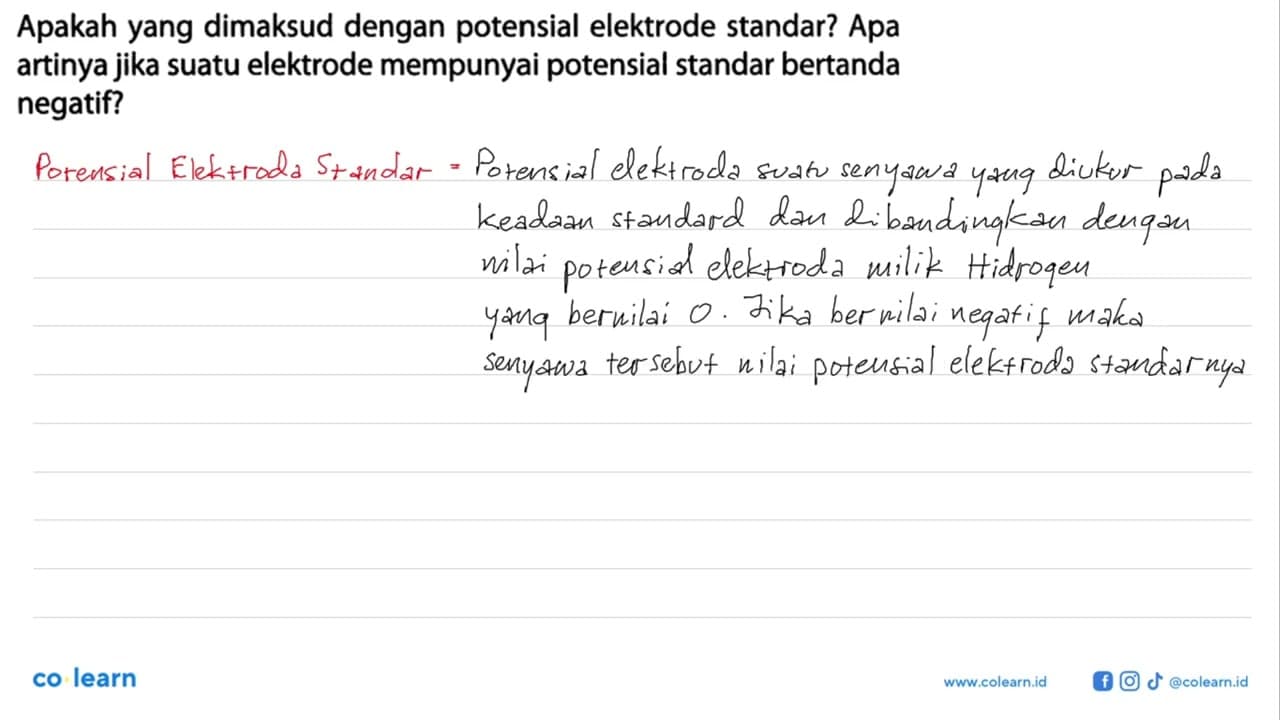 Apakah yang dimaksud dengan potensial elektrode standar? Apa
artinya jika suatu elektrode mempunyai potensial standar bertanda
negatif?
Potensial Elektroda Standar = Potensial elektroda suatu senyawa yang diukur pada
keadaan standard dan dibandingkan dengan
nilai potensial elektroda milik Hidrogen
yang bernilai 0. Jika bernilai negatif maka
senyawa tersebut nilai potensial elektroda standarnya
co learn
www.colearn.id
@colearn.id